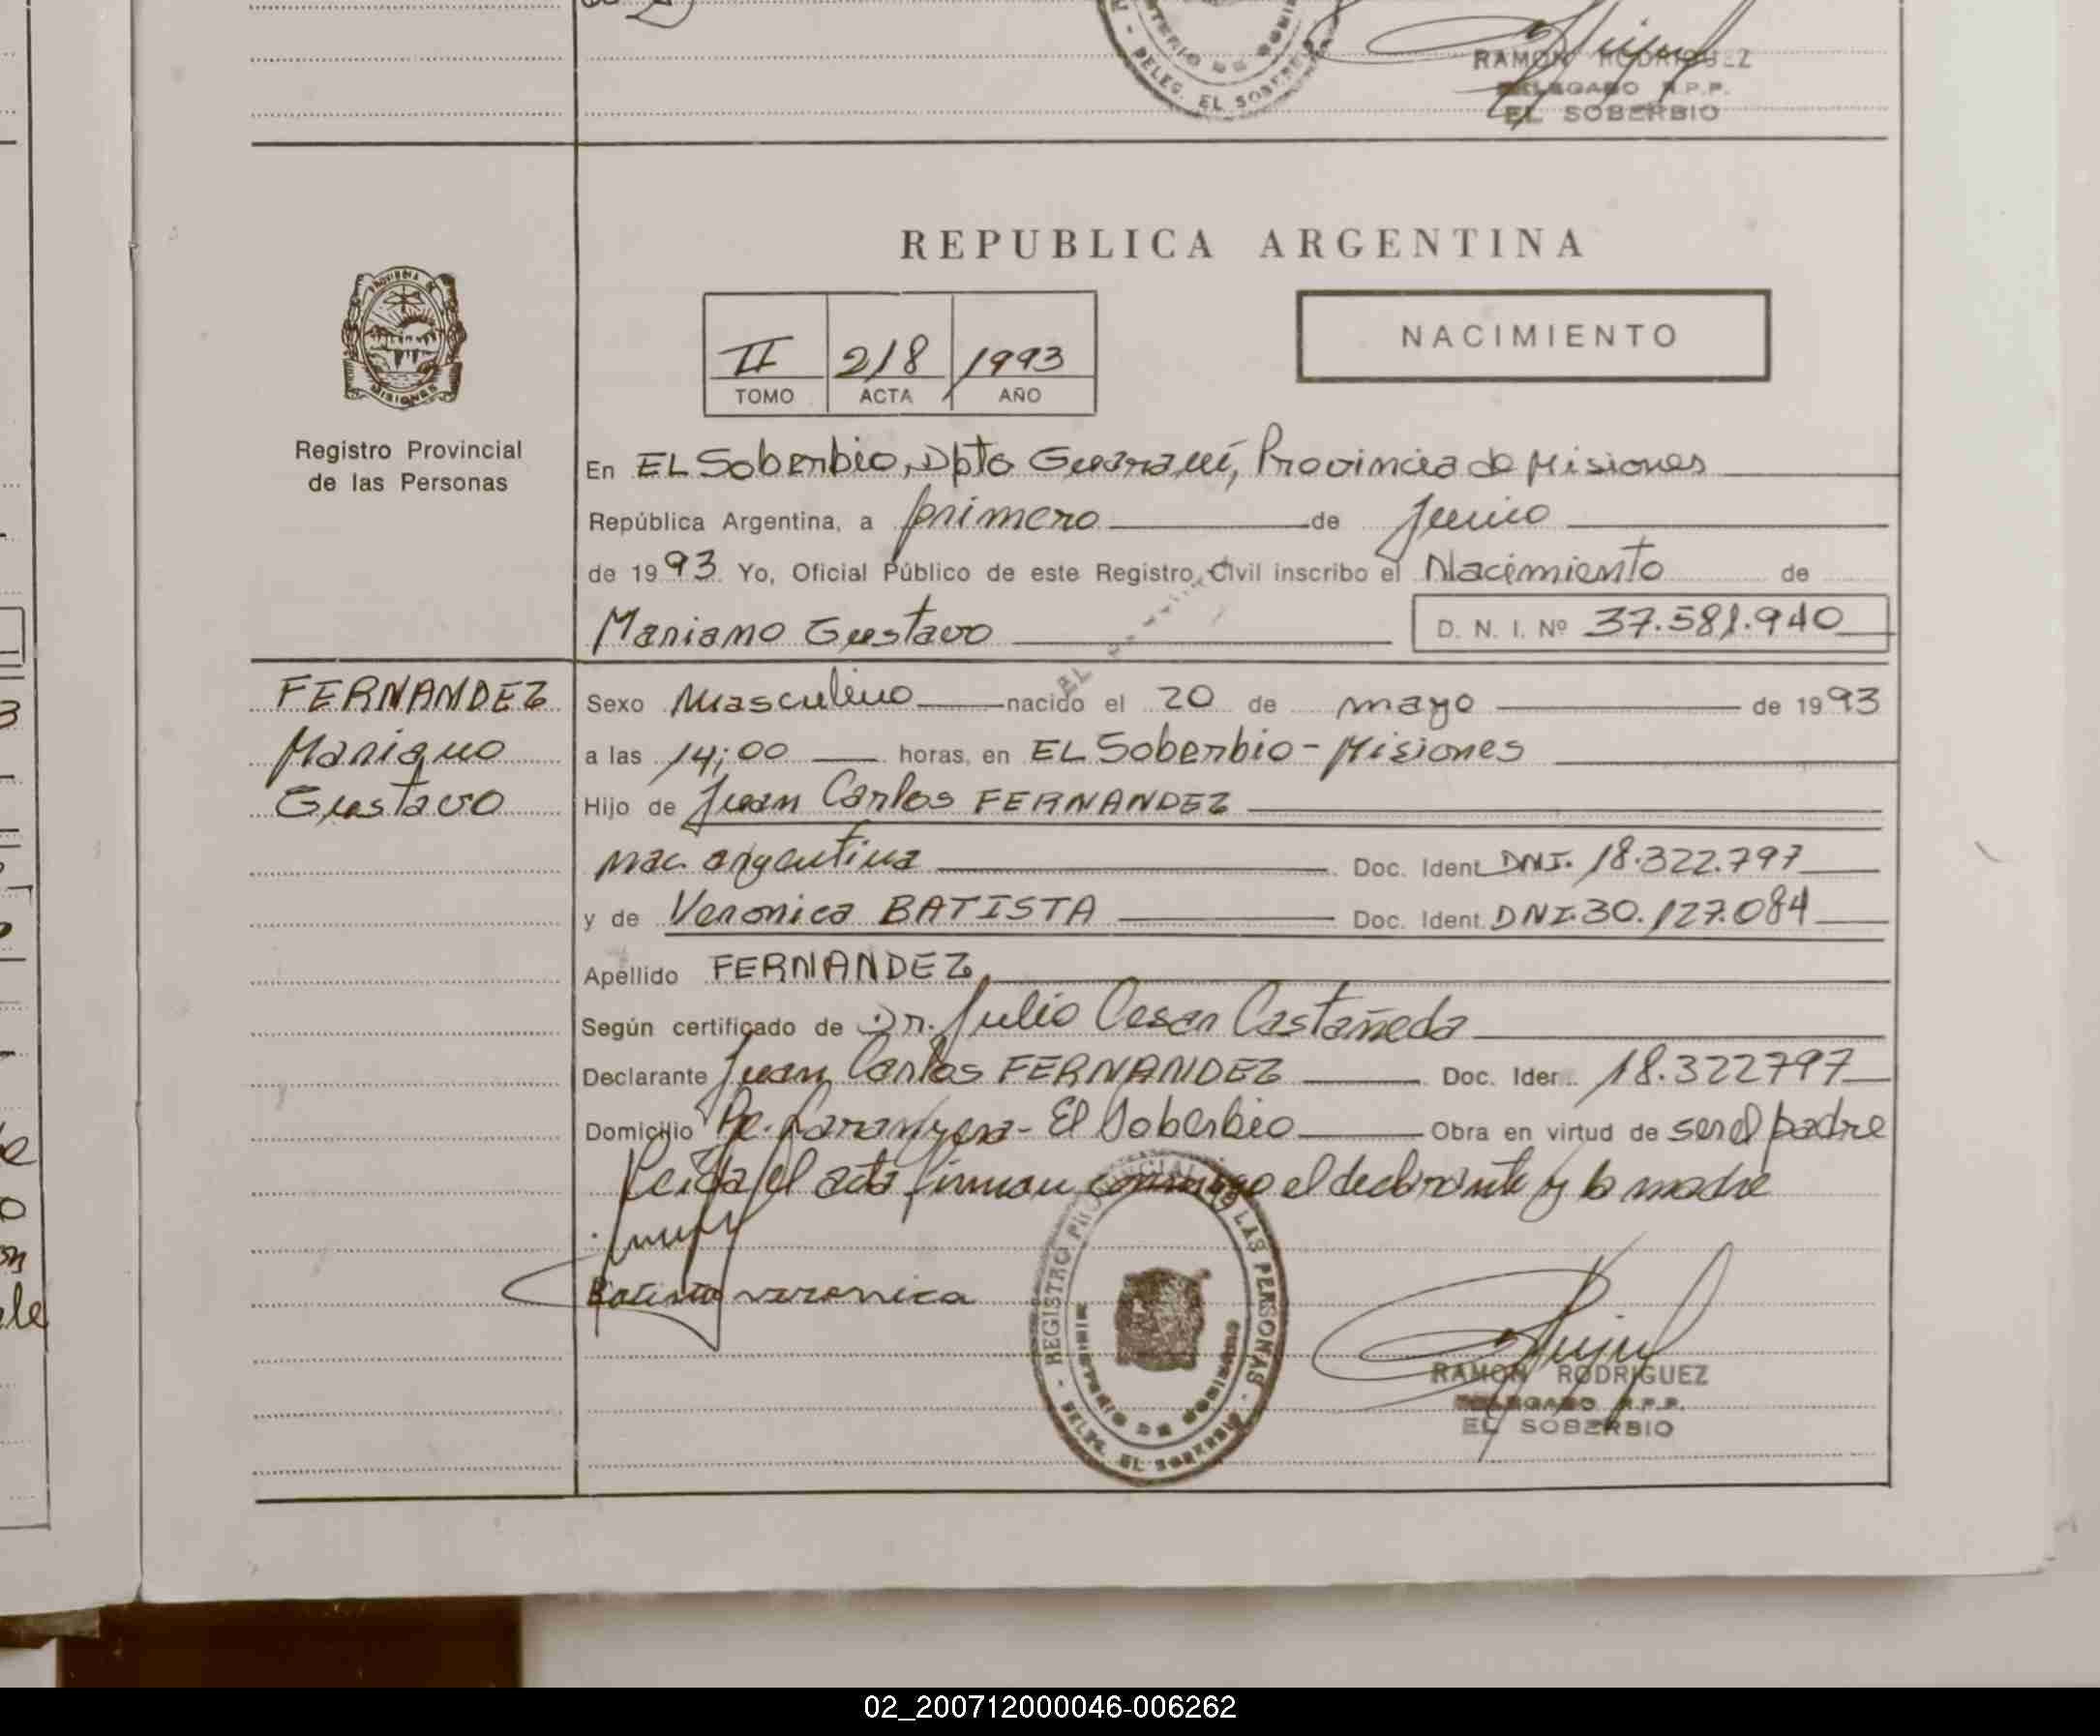 RAMON RODRIGUEZ
DELEGADO R.P.P.
EL SOBERBIO
DELEG. EL SOBERBIO
REPUBLICA ARGENTINA
NACIMIENTO
II 218 1993
TOMO ACTA AÑO
PROVINCIA DE MISIONES
Registro Provincial
de las Personas
En EL Soberbio, Dpto Guaraní, Provincia de Misiones
República Argentina, a primero de Junio
de 1993 Yo, Oficial Público de este Registro Civil inscribo el Nacimiento de
Mariano Gustavo D. N. I. Nº 37.581.940
FERNANDEZ
Mariano
Gustavo
Sexo Masculino nacido el 20 de mayo de 1993
a las 14;00 horas, en EL Soberbio - Misiones
Hijo de Juan Carlos FERNANDEZ
nac. argentina Doc. Ident DNI. 18.322.797
y de Veronica BATISTA Doc. Ident. DNI.30.127.084
Apellido FERNANDEZ
Según certificado de Dr. Julio Cesar Castañeda
Declarante Juan Carlos FERNANDEZ Doc. Iden. 18.322797
Domicilio - El Soberbio Obra en virtud de ser el padre
Leida el acta firman conmigo el declarante y la madre
Batista veronica
REGISTRO PROVINCIAL DE LAS PERSONAS - DELEG. EL SOBERBIO
MINISTERIO DE GOBIERNO
RAMON RODRIGUEZ
DELEGADO R.P.P.
EL SOBERBIO
02_200712000046-006262